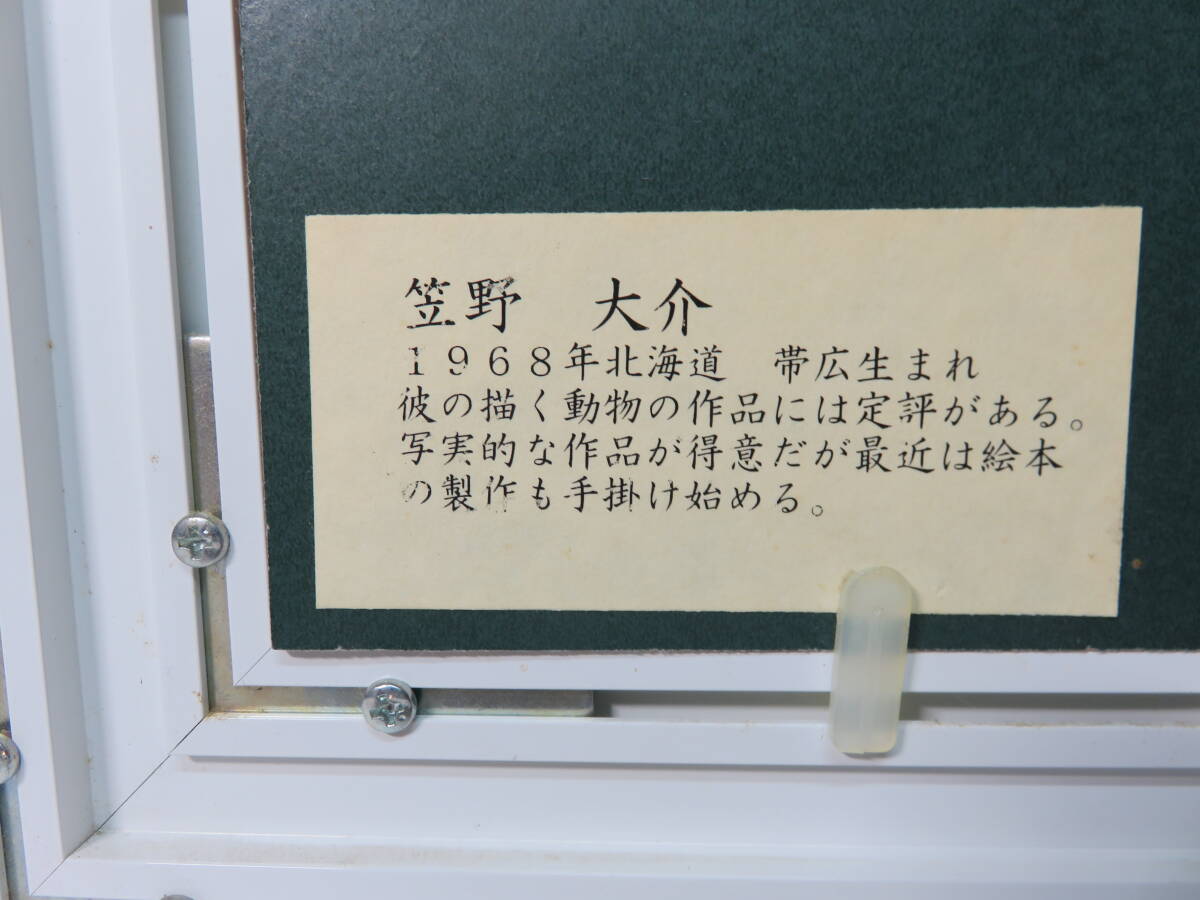 笠野　大介
１９６８年北海道　帯広生まれ
彼の描く動物の作品には定評がある。
写実的な作品が得意だが最近は絵本
の製作も手掛け始める。